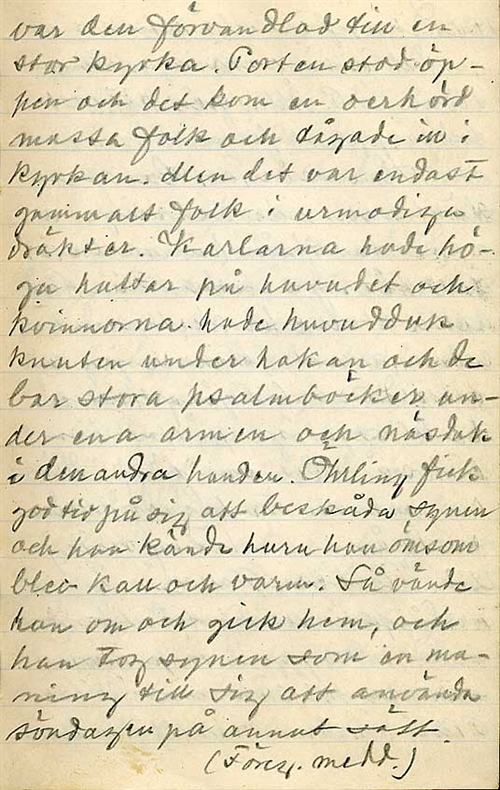 var den förvandlad till en
stor kyrka. Porten stod öp-
pen och det kom en oerhörd
massa folk och tågade in i
kyrkan. Men det var endast
gammalt folk i urmodiga
dräkter. Karlarna hade hö-
ga hattar på huvudet och
kvinnorna hade huvudduk
knuten under hakan och de
bar stora psalmböcker un-
der ena armen och näsduk
i den andra handen. Öhrling fick
god tid på sig att beskåda synen
och han kände huru han ömsom
blev kall och varm. Så vände
han om och gick hem, och
han tog synen som en ma-
ning till sig att använda
söndagen på annat sätt.
(Föreg. medd.)